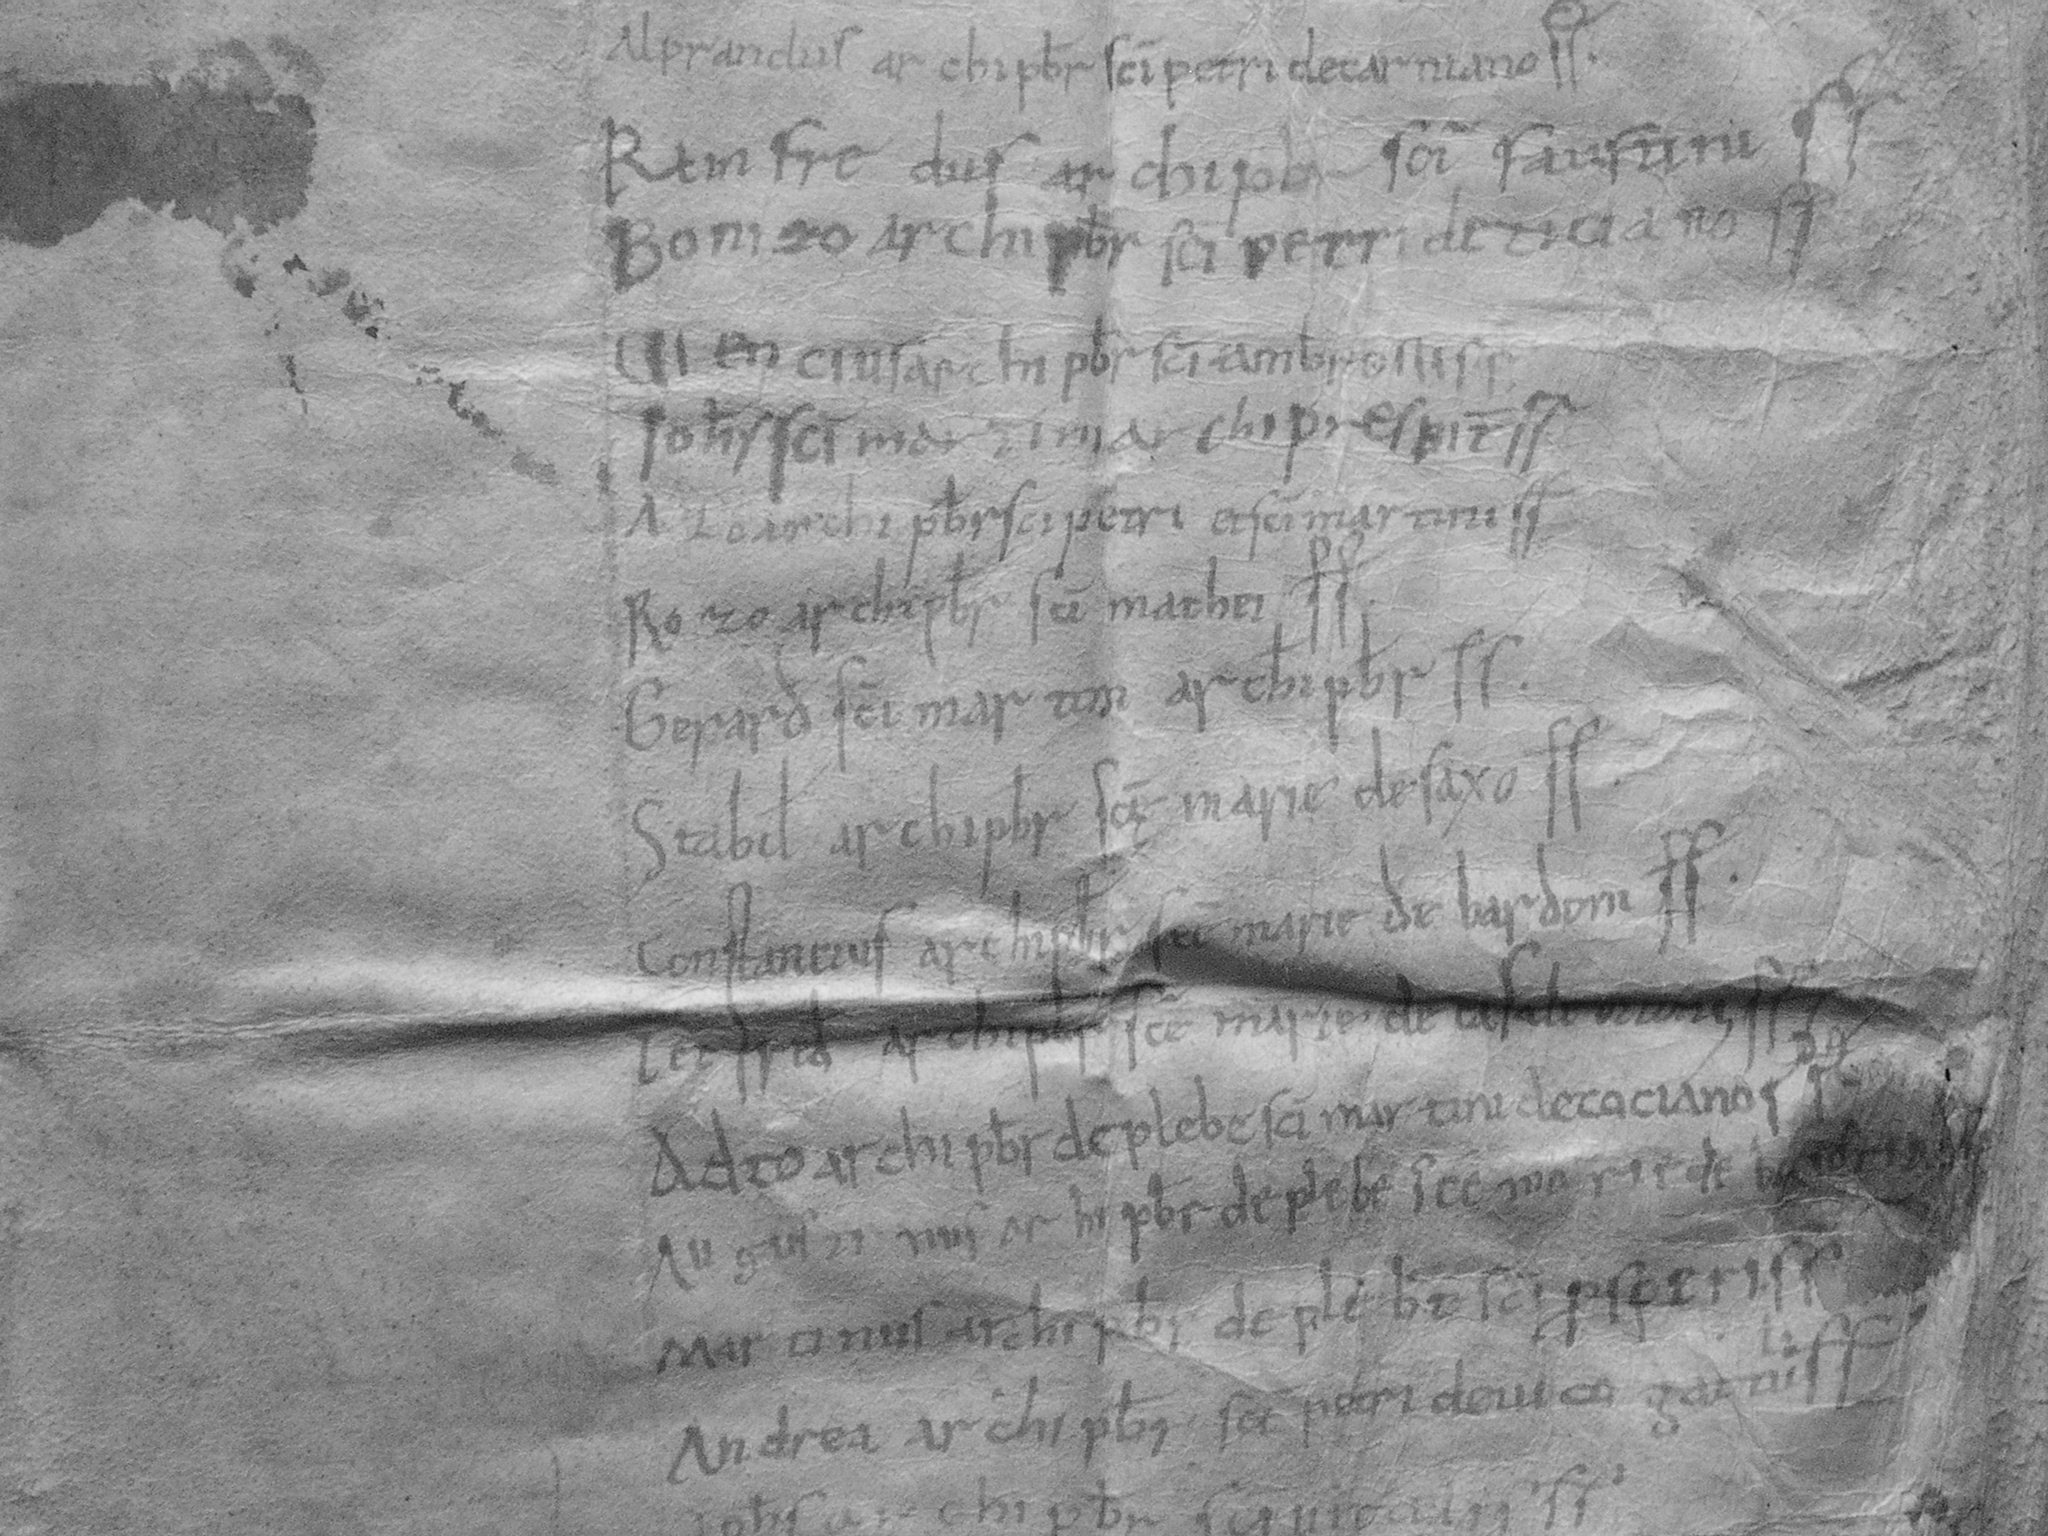 Alprandus archipbr sci petri decarniano ss.
Reinfredus archipbr sci faustini ss
Bonizo archipbr sci petri deticiano ss
Uiencius archipbr sci ambrosii
Iohs sci martini archi
Azo archipbr sci petri et sci martini ss
Rozo archipbr sci mathei ss.
Gerard sci martini archipbr ss.
Stabil archipbr scę marie desaxo ss.
Constantius archipbr sce marie de bardoni ss.
archipbr sce marie de ss
Adto archipbr de plebe sci martini detociano ss
Augustinus archipbr de plebe sce marie de
Martinus archipbr de plebe sci ss
Andrea archipbr sci petri deuico gattuli ss
Iohs archipbr sci uitalis ss